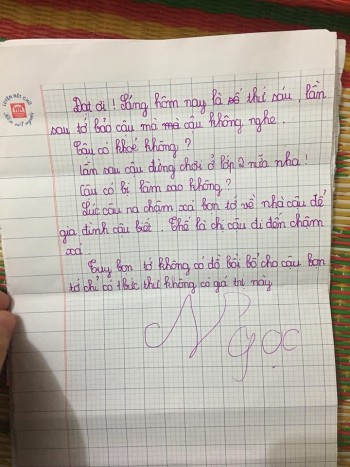 Đạt ơi! Sáng hôm nay là số thứ sáu, lần
sau tớ bảo cậu mà mà cậu không nghe.
Cậu có khoẻ không?
lần sau cậu đừng chơi ở lớp 2 nữa nha!
Cậu có bị làm sao không?
Lúc cậu ra chậm xá bọn tớ về nhà cậu để
gia đình cậu biết. Thế là chị cậu đi đến chậm
xá
Tuy bọn tớ không có đồ bồi bổ cho cậu bọn
tớ chỉ có thức thư không có giá trị này
Ngọc